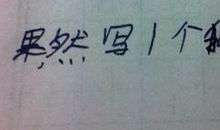 果然写1个